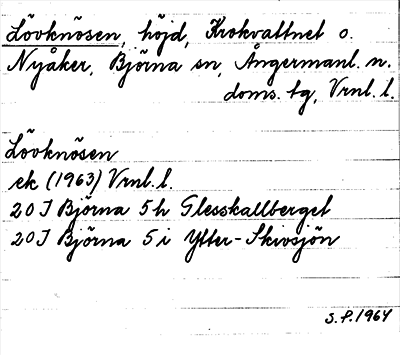 Lövknösen, höjd, Krokvattnet o.
Nyåker, Björna sn, Ångermanl. n.
doms. tg, Vrnl. l.
Lövknösen
ek (1963) Vrnl. l.
20 J Björna 5 h Glesskallberget
20 J Björna 5 i Ytter-Skivsjön
S.P. 1964